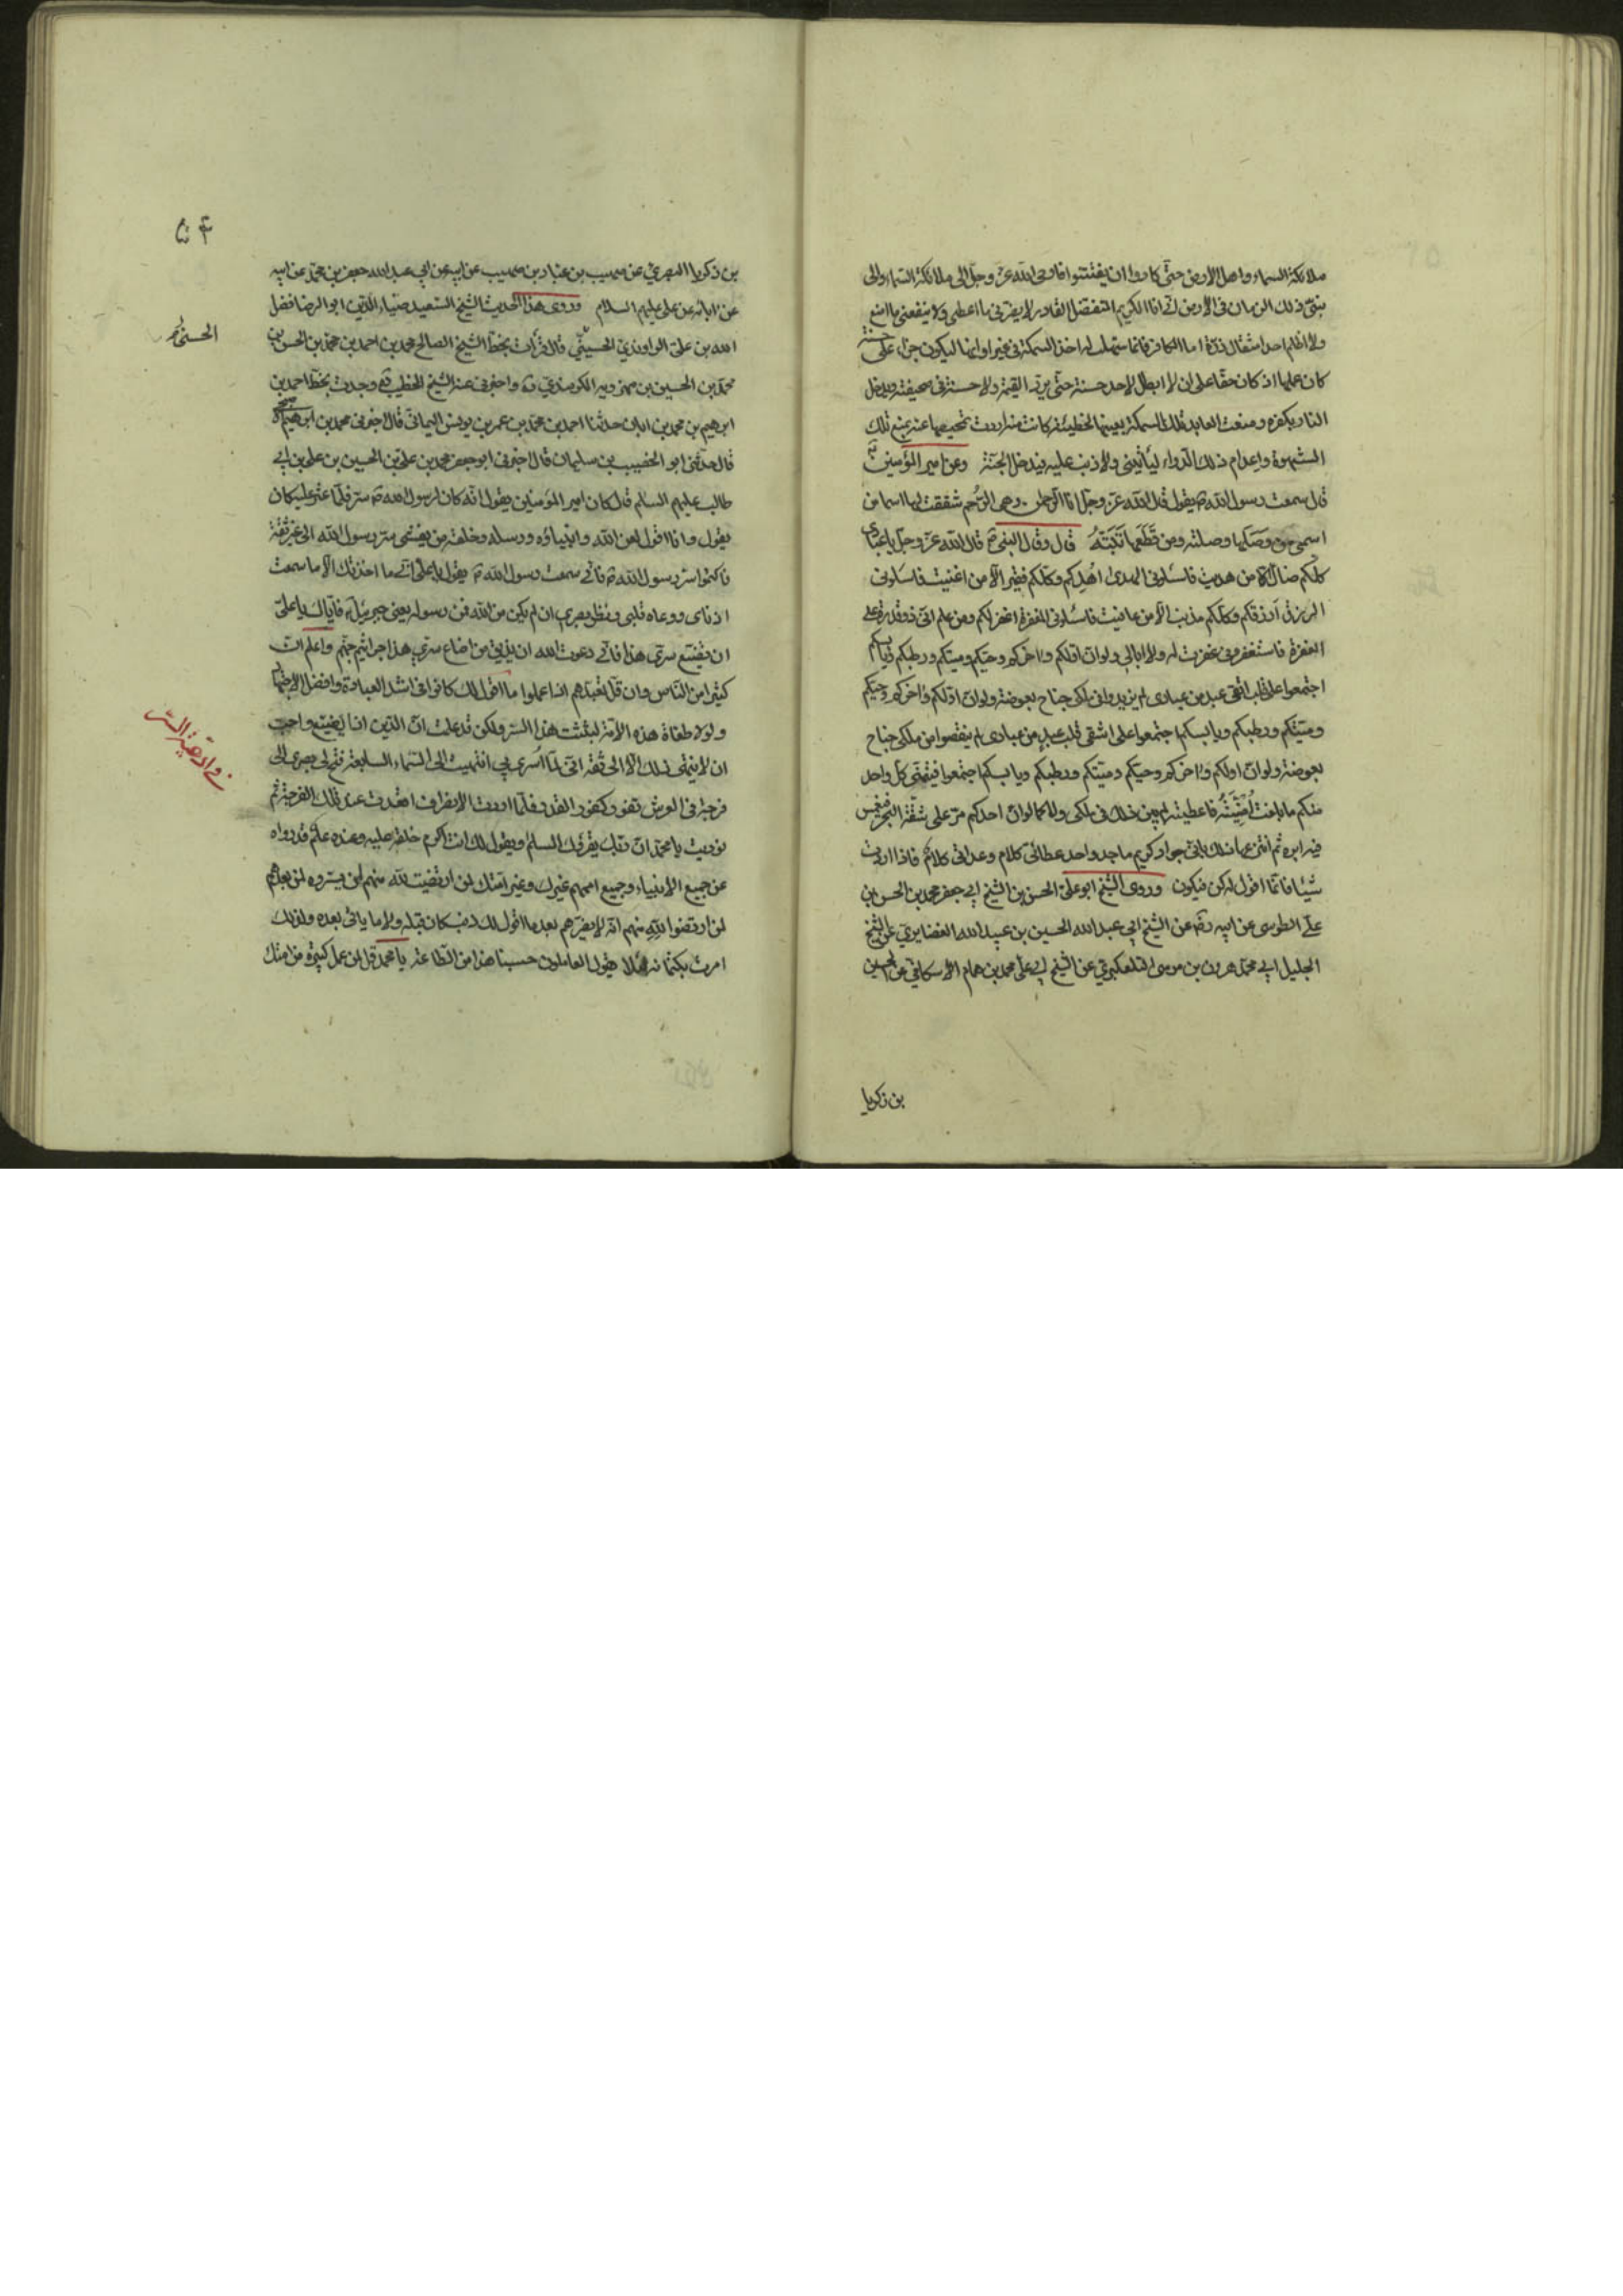 ملائكة السماء واهل الارض حتى كادوا ان يفتتنوا فاوحى الله عز وجل الى ملائكة السماء والى
نبى ذلك الزمان فى الارض انى انا الكريم المتفضل القادر لا يضرنى ما اعطى ولا ينفعنى ما امنع
ولا اظلم احدا مثقال ذرة اما الكافر فانما سهلت له اخذ السمكة فى غير اوانها ليكون جزاء على حسنة
كان عملها اذ كان حقا على ان لا ابطل لاحد حسنة حتى يرد القيمة ولا حسنة فى صحيفته ويدخل
النار بكفره ومنعت العابد تلك السمكة بعينها لخطيئة كانت منه اردت تمحيصها عنه بمنع تلك
الشهوة واعدام ذلك الدواء ليأتينى ولا ذنب عليه فيدخل الجنة وعن امير المؤمنين
قال سمعت رسول الله ص يقول قال الله عز وجل انا الرحمن وهى الرحم شققت لها اسما من
اسمى من وصلها وصلته ومن قطعها بتته قال وقال النبى ص قال الله عز وجل يا عبادى
كلكم ضال الا من هديت فاسئلونى الهدى اهدكم وكلكم فقير الا من اغنيت فاسئلونى
الرزق ارزقكم وكلكم مذنب الا من عافيت فاسئلونى المغفرة اغفر لكم ومن علم انى ذو قدرة على
المغفرة فاستغفرنى غفرت له ولا ابالى ولو ان اولكم واخركم وحيكم وميتكم ورطبكم ويابسكم
اجتمعوا على قلب اتقى عبد من عبادى لم يزيدوا فى ملكى جناح بعوضة ولو ان اولكم واخركم وحيكم
وميتكم ورطبكم ويابسكم اجتمعوا على اشقى قلب عبد من عبادى لم ينقصوا من ملكى جناح
بعوضة ولو ان اولكم واخركم وحيكم وميتكم ورطبكم ويابسكم اجتمعوا فيتمنى كل واحد
منكم ما بلغت امنيته فاعطيته لم يبن ذلك فى ملكى ولا كما لو ان احدكم مر على شفة البحر فغمس
فيه ابرة ثم انتزعها ذلك بانى جواد كريم ماجد واحد عطائى كلام وعداتى كلام فاذا اردت
شيئا فانما اقول له كن فيكون وروى الشيخ ابو على الحسن بن الشيخ ابى جعفر محمد بن الحسن بن
على الطوسى عن ابيه رض عن الشيخ ابى عبد الله الحسين بن عبيد الله الغضايرى عن الشيخ
الجليل ابى محمد هرون بن موسى التلعكبرى عن الشيخ ابى على محمد بن همام الاسكافى عن الحسين
بن زكريا
بن زكريا البصرى عن صهيب بن عباد بن صهيب عن ابيه عن ابى عبد الله جعفر بن محمد عن ابيه
عن ابائه عن على عليهم السلام وروى هذا الحديث الشيخ السعيد ضياء الدين ابو الرضا فضل
الله بن على الراوندى الحسينى قال قرأت بخط الشيخ الصالح محمد بن احمد بن محمد بن الحسن بن
الحسنى
محمد بن الحسين بن مهرويه الكرمندى واخبرنى عنه الشيخ الخطيب وجدت بخط احمد بن
ابرهيم بن محمد بن ابان حدثنا احمد بن محمد بن عمر بن يونس اليمانى قال اخبرنى محمد بن ابرهيم
قال حدثنى ابو الخصيب بن سليمان قال اخبرنى ابو جعفر محمد بن على بن الحسين بن على بن ابى
طالب عليهم السلام قال كان امير المؤمنين يقول انه كان لرسول الله ص سر قلما عثر عليه كان
يقول وانا اقول لعن الله وانبياؤه ورسله وخلقه من يفشى سر رسول الله الى غير ثقة
فاكتموا سر رسول الله ص فانى سمعت رسول الله ص يقول يا على انى ما احدثك الا ما سمعت
اذناى ووعاه قلبى ونظر بصرى ان لم يكن من الله فمن رسوله يعنى جبرئيل فاياك يا على
ان تضيع سرى هذا فانى دعوت الله ان يذيق من اضاع سرى هذا جراثيم جهنم واعلم ان
كثيرا من الناس وان قل تعبدهم اذا عملوا ما اقول لك كانوا فى اشد العبادة وافضل الاجتهاد
ولولا طغاة هذه الامة لبثثت هذا السر ولكن قد علمت ان الدين اذا يضيع واحببت
ان لا ينتهى ذلك الا الى ثقة انى لما اسرى بى انتهيت الى السماء السابعة فتح لى بصرى الى
فرجة فى العرش تفور كفور القدر فلما اردت الانصراف اقعدت عند تلك الفرجة ثم
نوديت يا محمد ان ربك يقرئك السلم ويقول لك انت اكرم خلقه عليه وعنده علم قد زواه
عن جميع الانبياء وجميع اممهم غيرك وغير امتك لمن ارتضيت لله منهم لمن يسروه لمن بعدهم
لمن ارتضوا لله منهم انه لا يضرهم بعد ما اقول لك ذنب كان قبله ولا ما ياتى بعده ولذلك
امرت بكتمانه لئلا يقول العاملون حسبنا هذا من الطاعة يا محمد قل لمن عمل كبيرة من امتك
ادعية السر